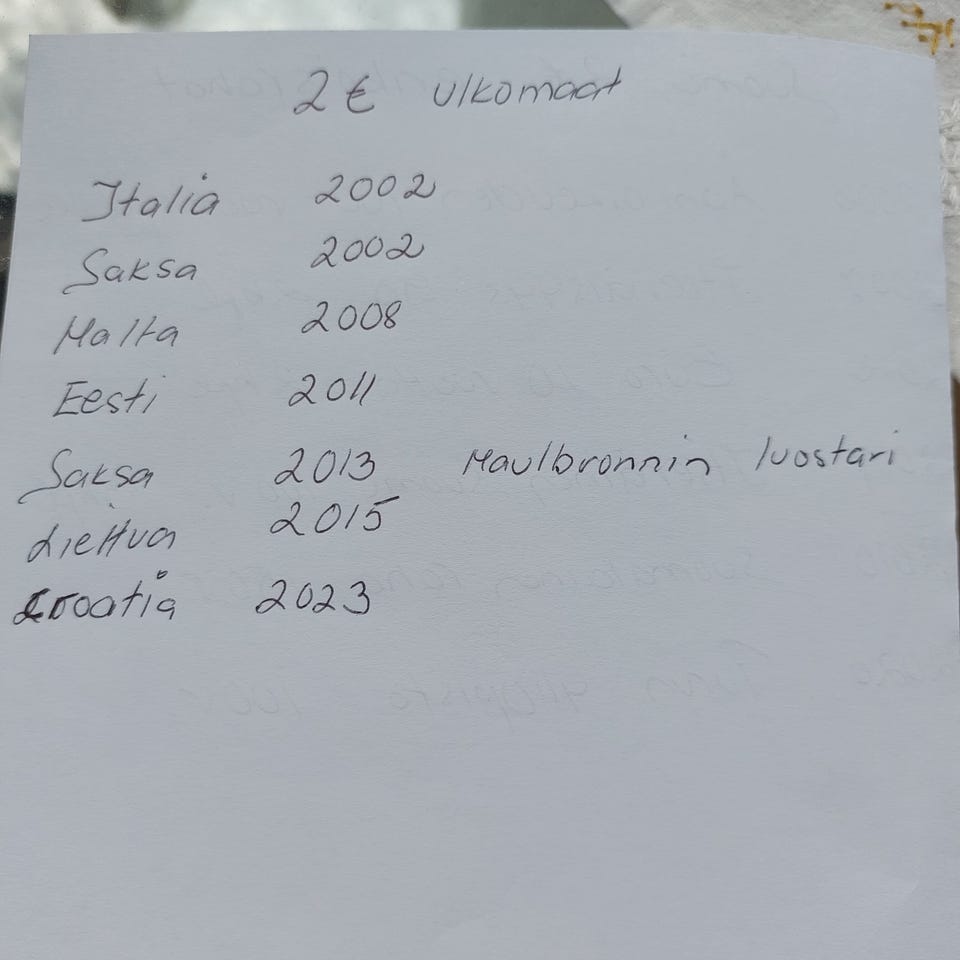 2 € ulkomaat
Italia 2002
Saksa 2002
Malta 2008
Eesti 2011
Saksa 2013 Maulbronnin luostari
Liettua 2015
Croatia 2023